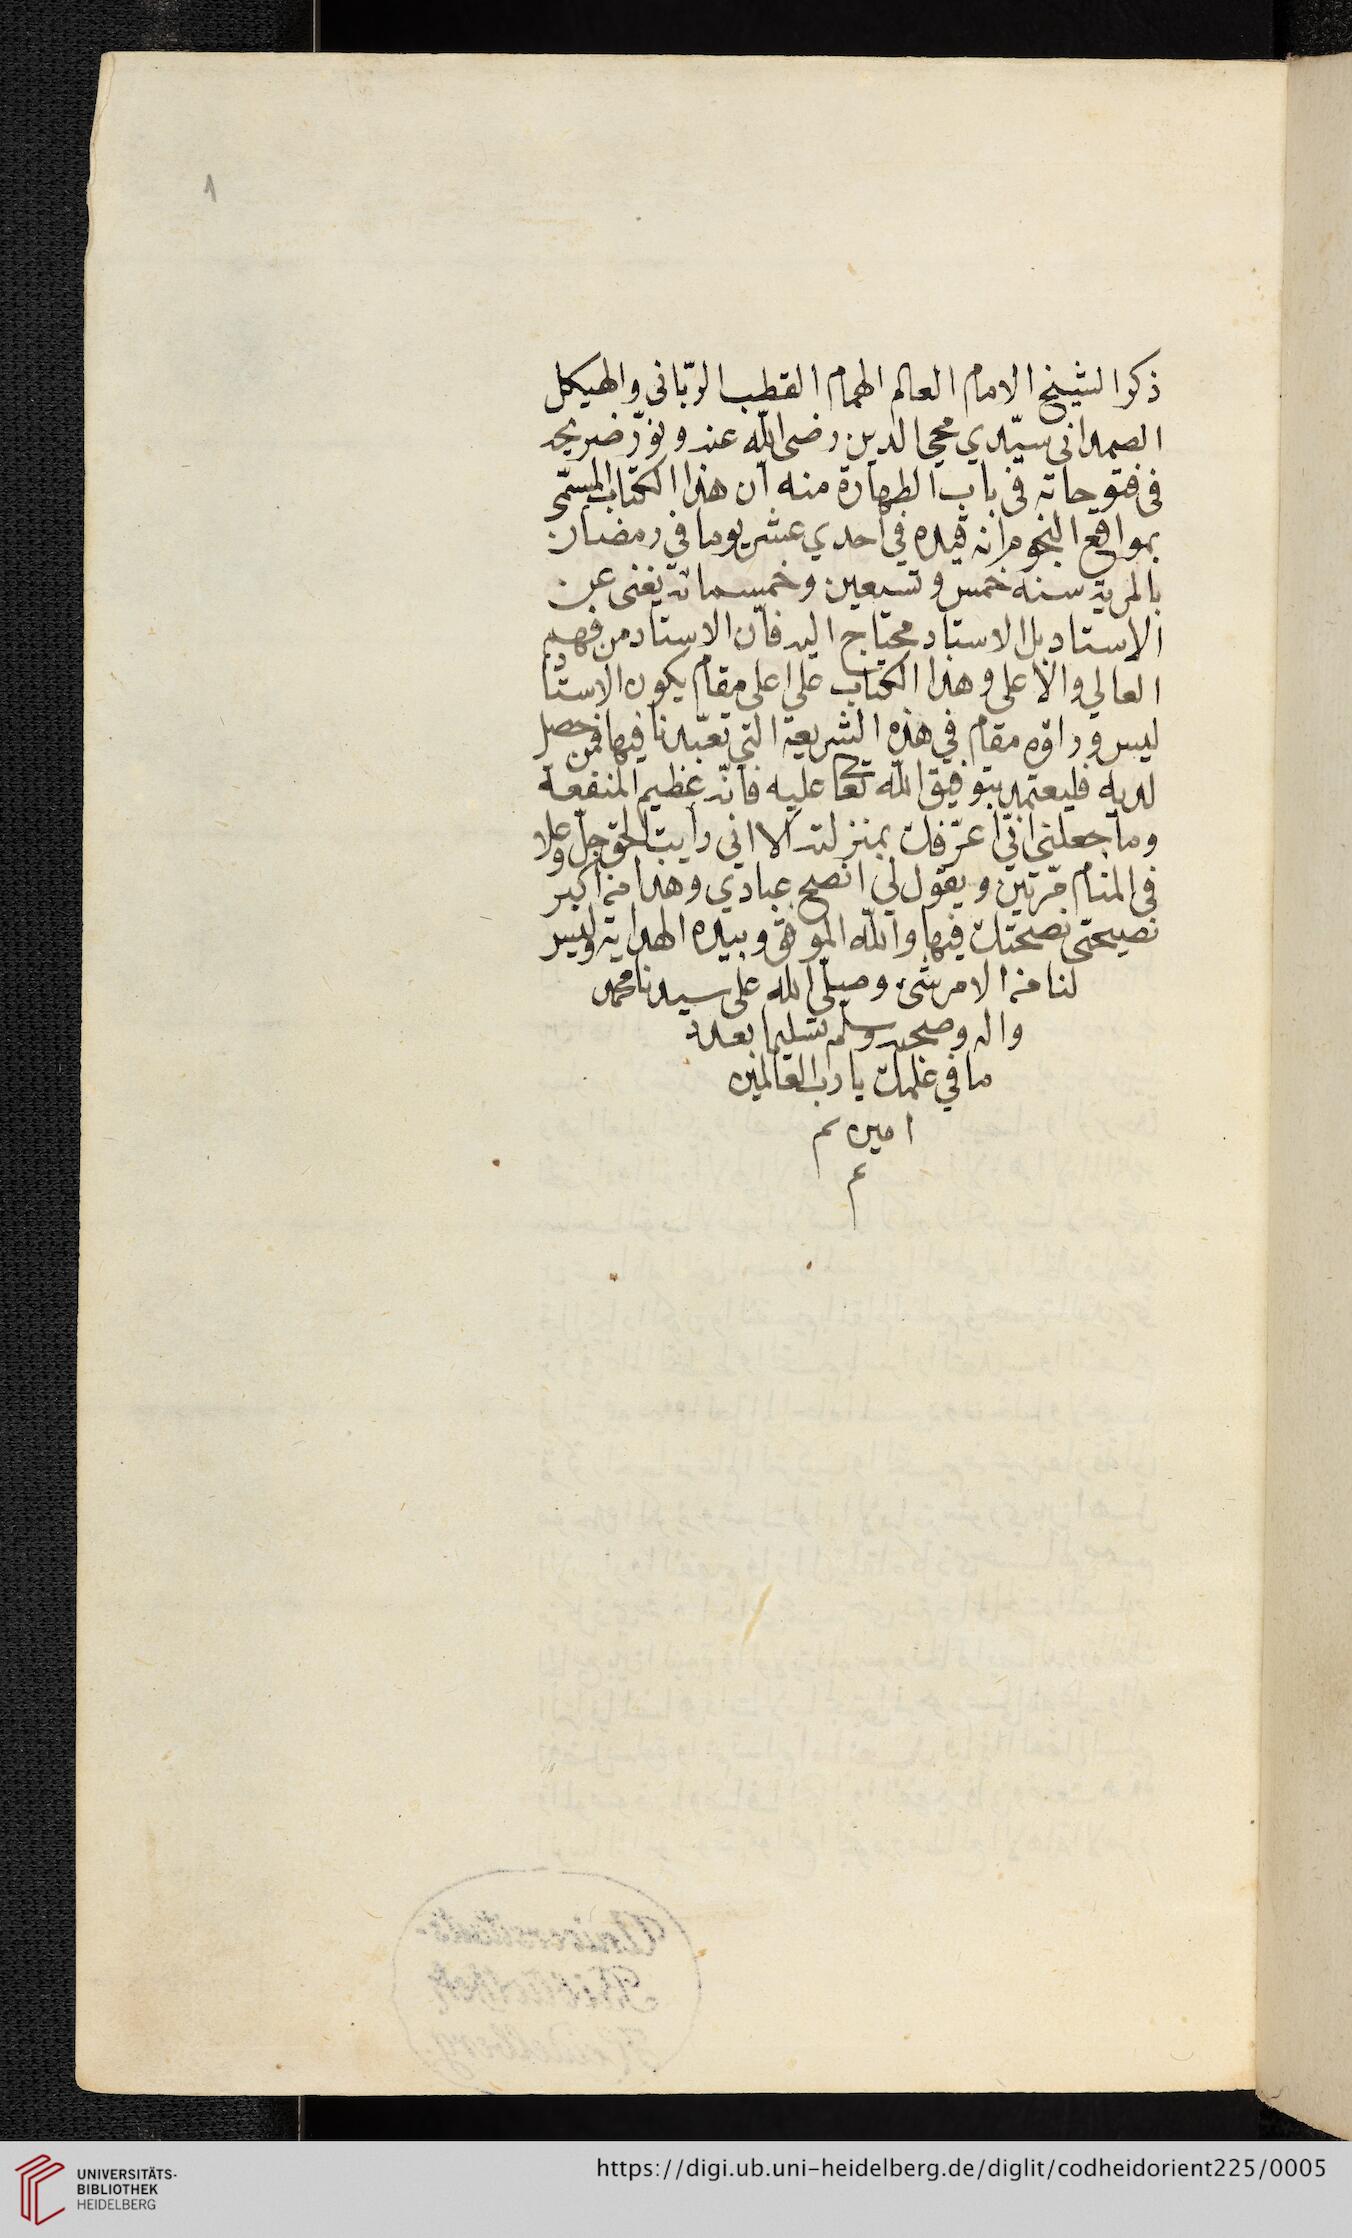 ١
ذكر الشيخ الامام العالم الهمام القطب الربّاني والهيكل
الصمداني سيّدي محي الدين رضى اللّه عنه ونوّر ضريحه
في فتوحاته في باب الطهارة منه ان هذا الكتاب المسمّى
بمواقع النجوم انه قيده في احدي عشر يوما في رمضان
بالمرية سنه خمس وتسعين وخمسمائة يغنى عن
الاستاد بل الاستاد محتاج اليه فانّ الاستاد من فهم
العالي والاعلى وهذا الكتاب على اعلى مقام يكون الاستاد
ليس وراؤه مقام في هذه الشريعة التي تعبّدنا فيها فمن حصل
لديه فليعتمد بتوفيق اللّه تعا عليه فانّه عظيم المنفعة
وما جعلني انّي اعرّفك بمنزلته الا اني رايت الحق جلّ وعلا
في المنام مرّتين ويقول لي انصح عبادي وهذا من اكبر
نصيحتى نصحتك فيها واللّه الموفق وبيده الهداية وليس
لنا من الامر شئ وصلّى الله على سيدنا محمد
واله وصحبه وسلم تسليما بعدد
ما في علمك يا رب العالمين
امين م
م
Universitäts-
Bibliothek
Heidelberg
UNIVERSITÄTS-
BIBLIOTHEK
HEIDELBERG
https://digi.ub.uni-heidelberg.de/diglit/codheidorient225/0005